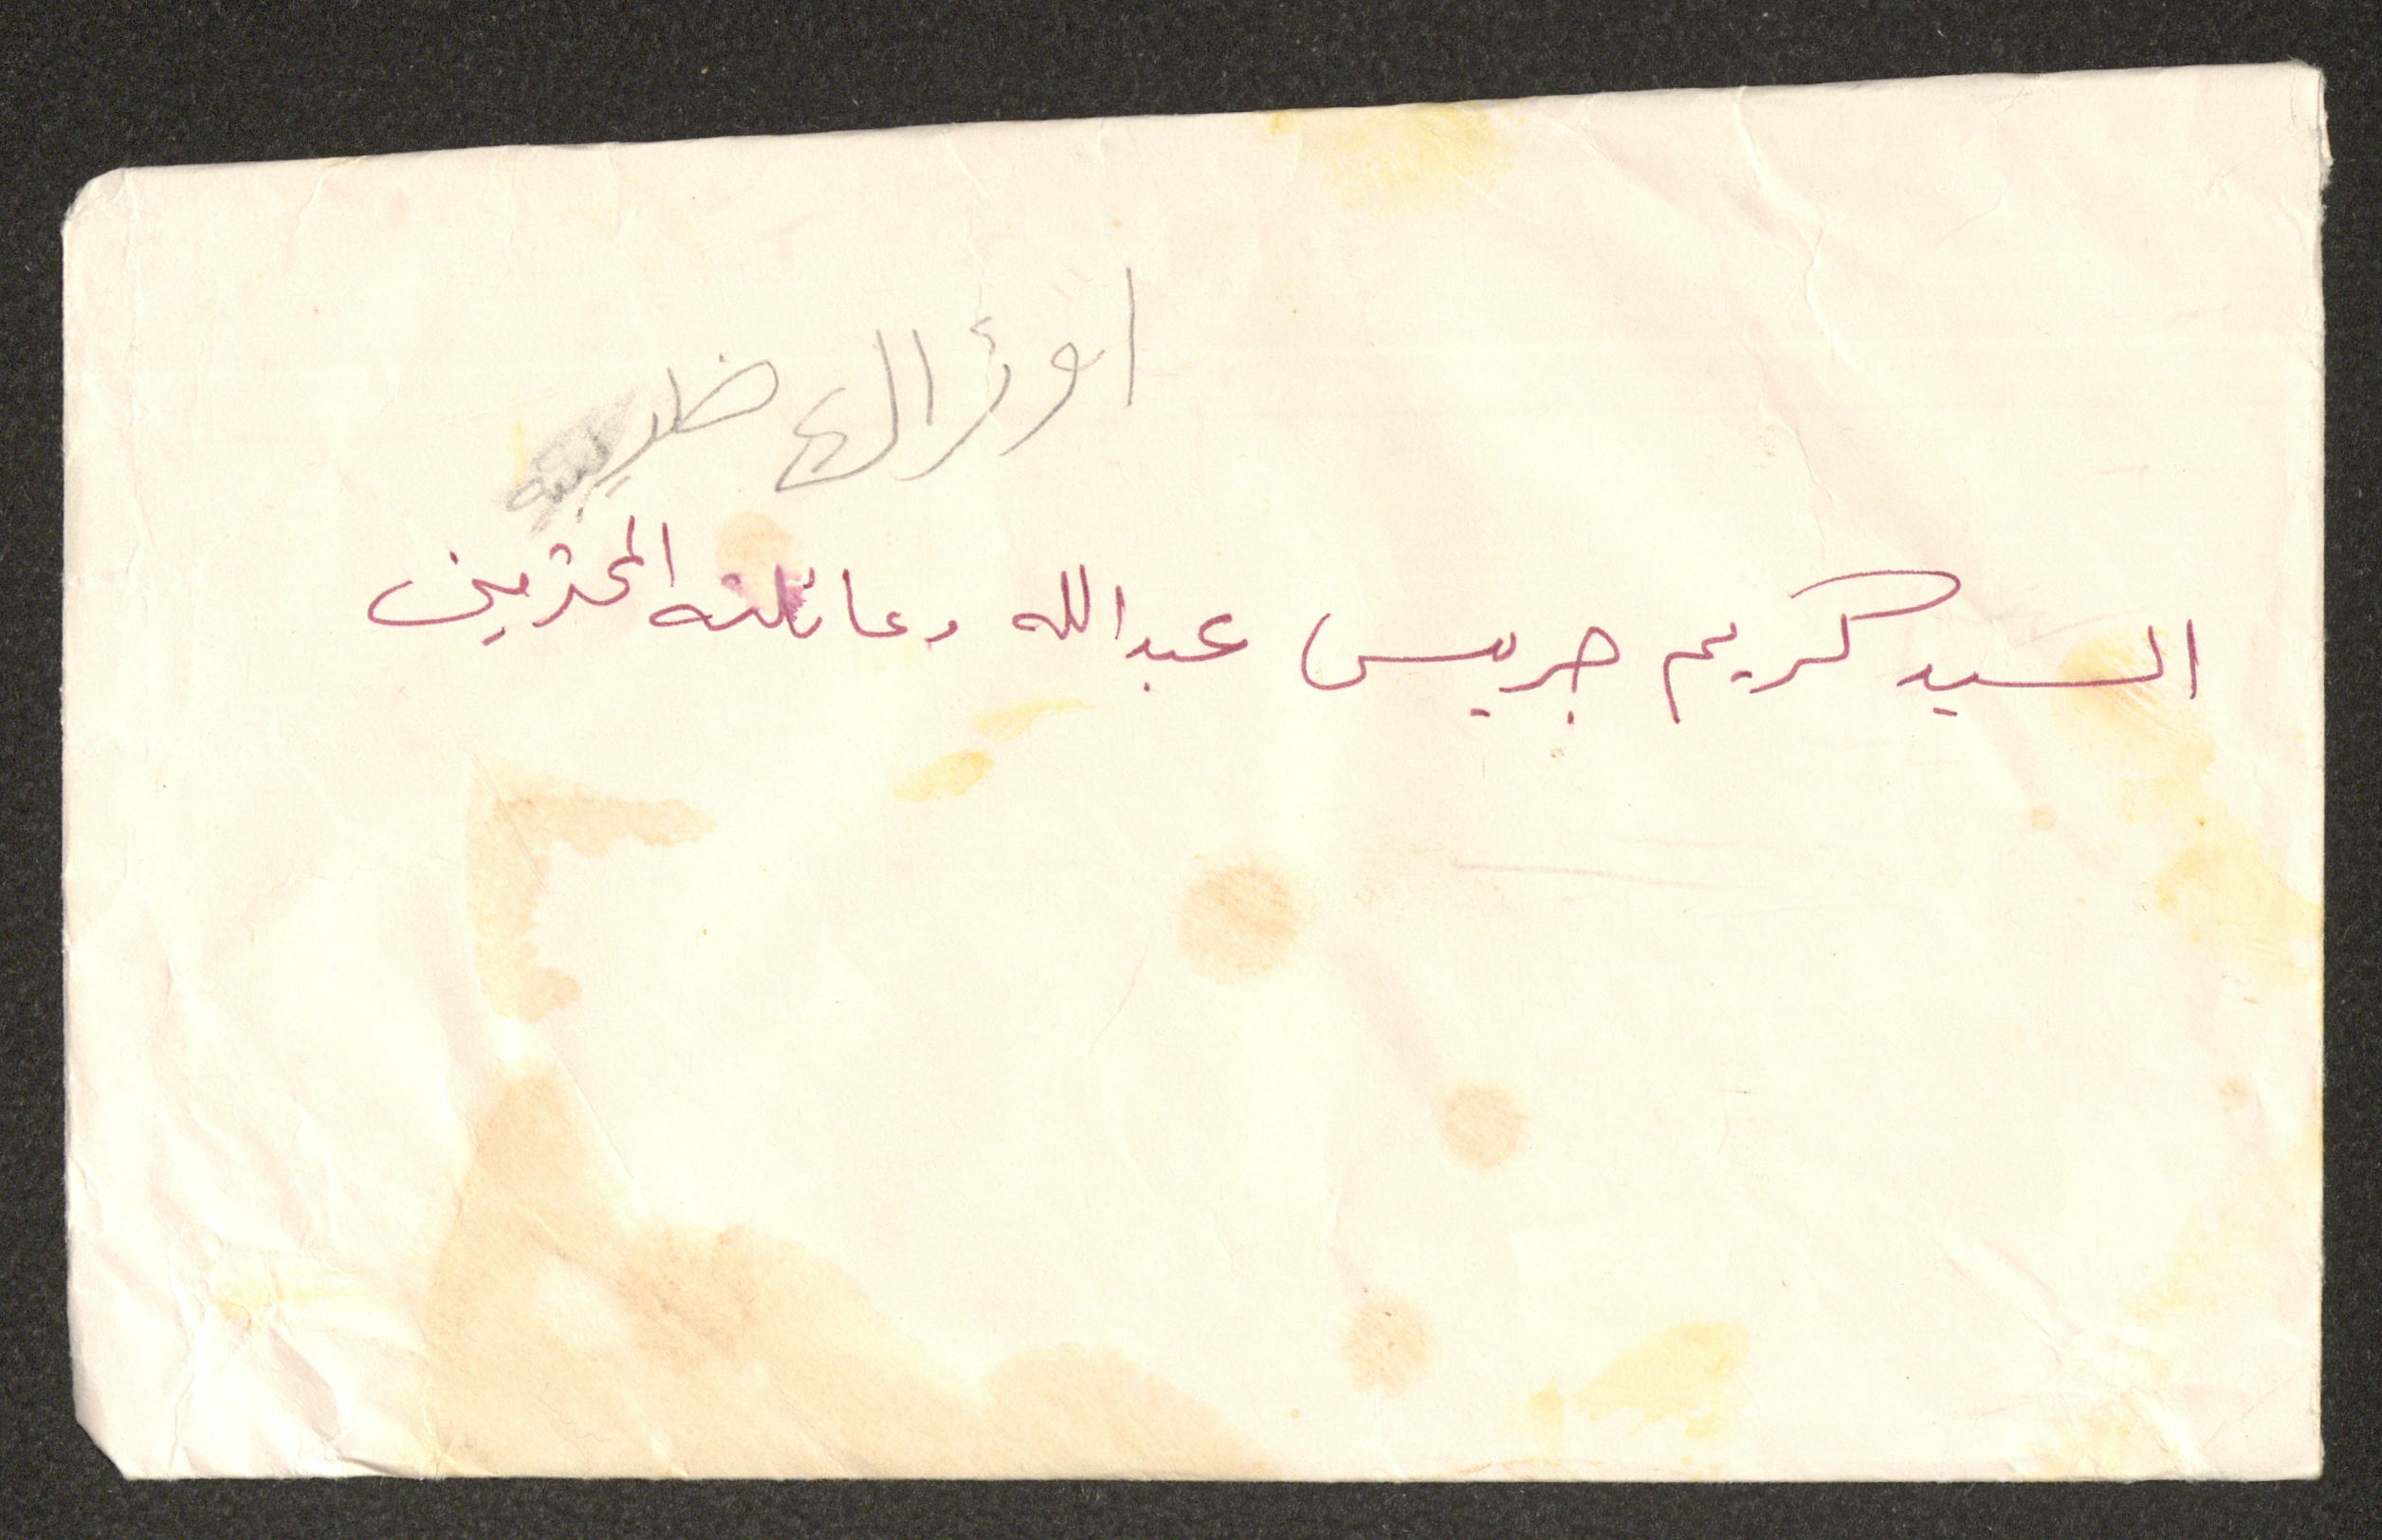 ضريبه
السيد كريم جريس عبدالله وعائلته المحترمين